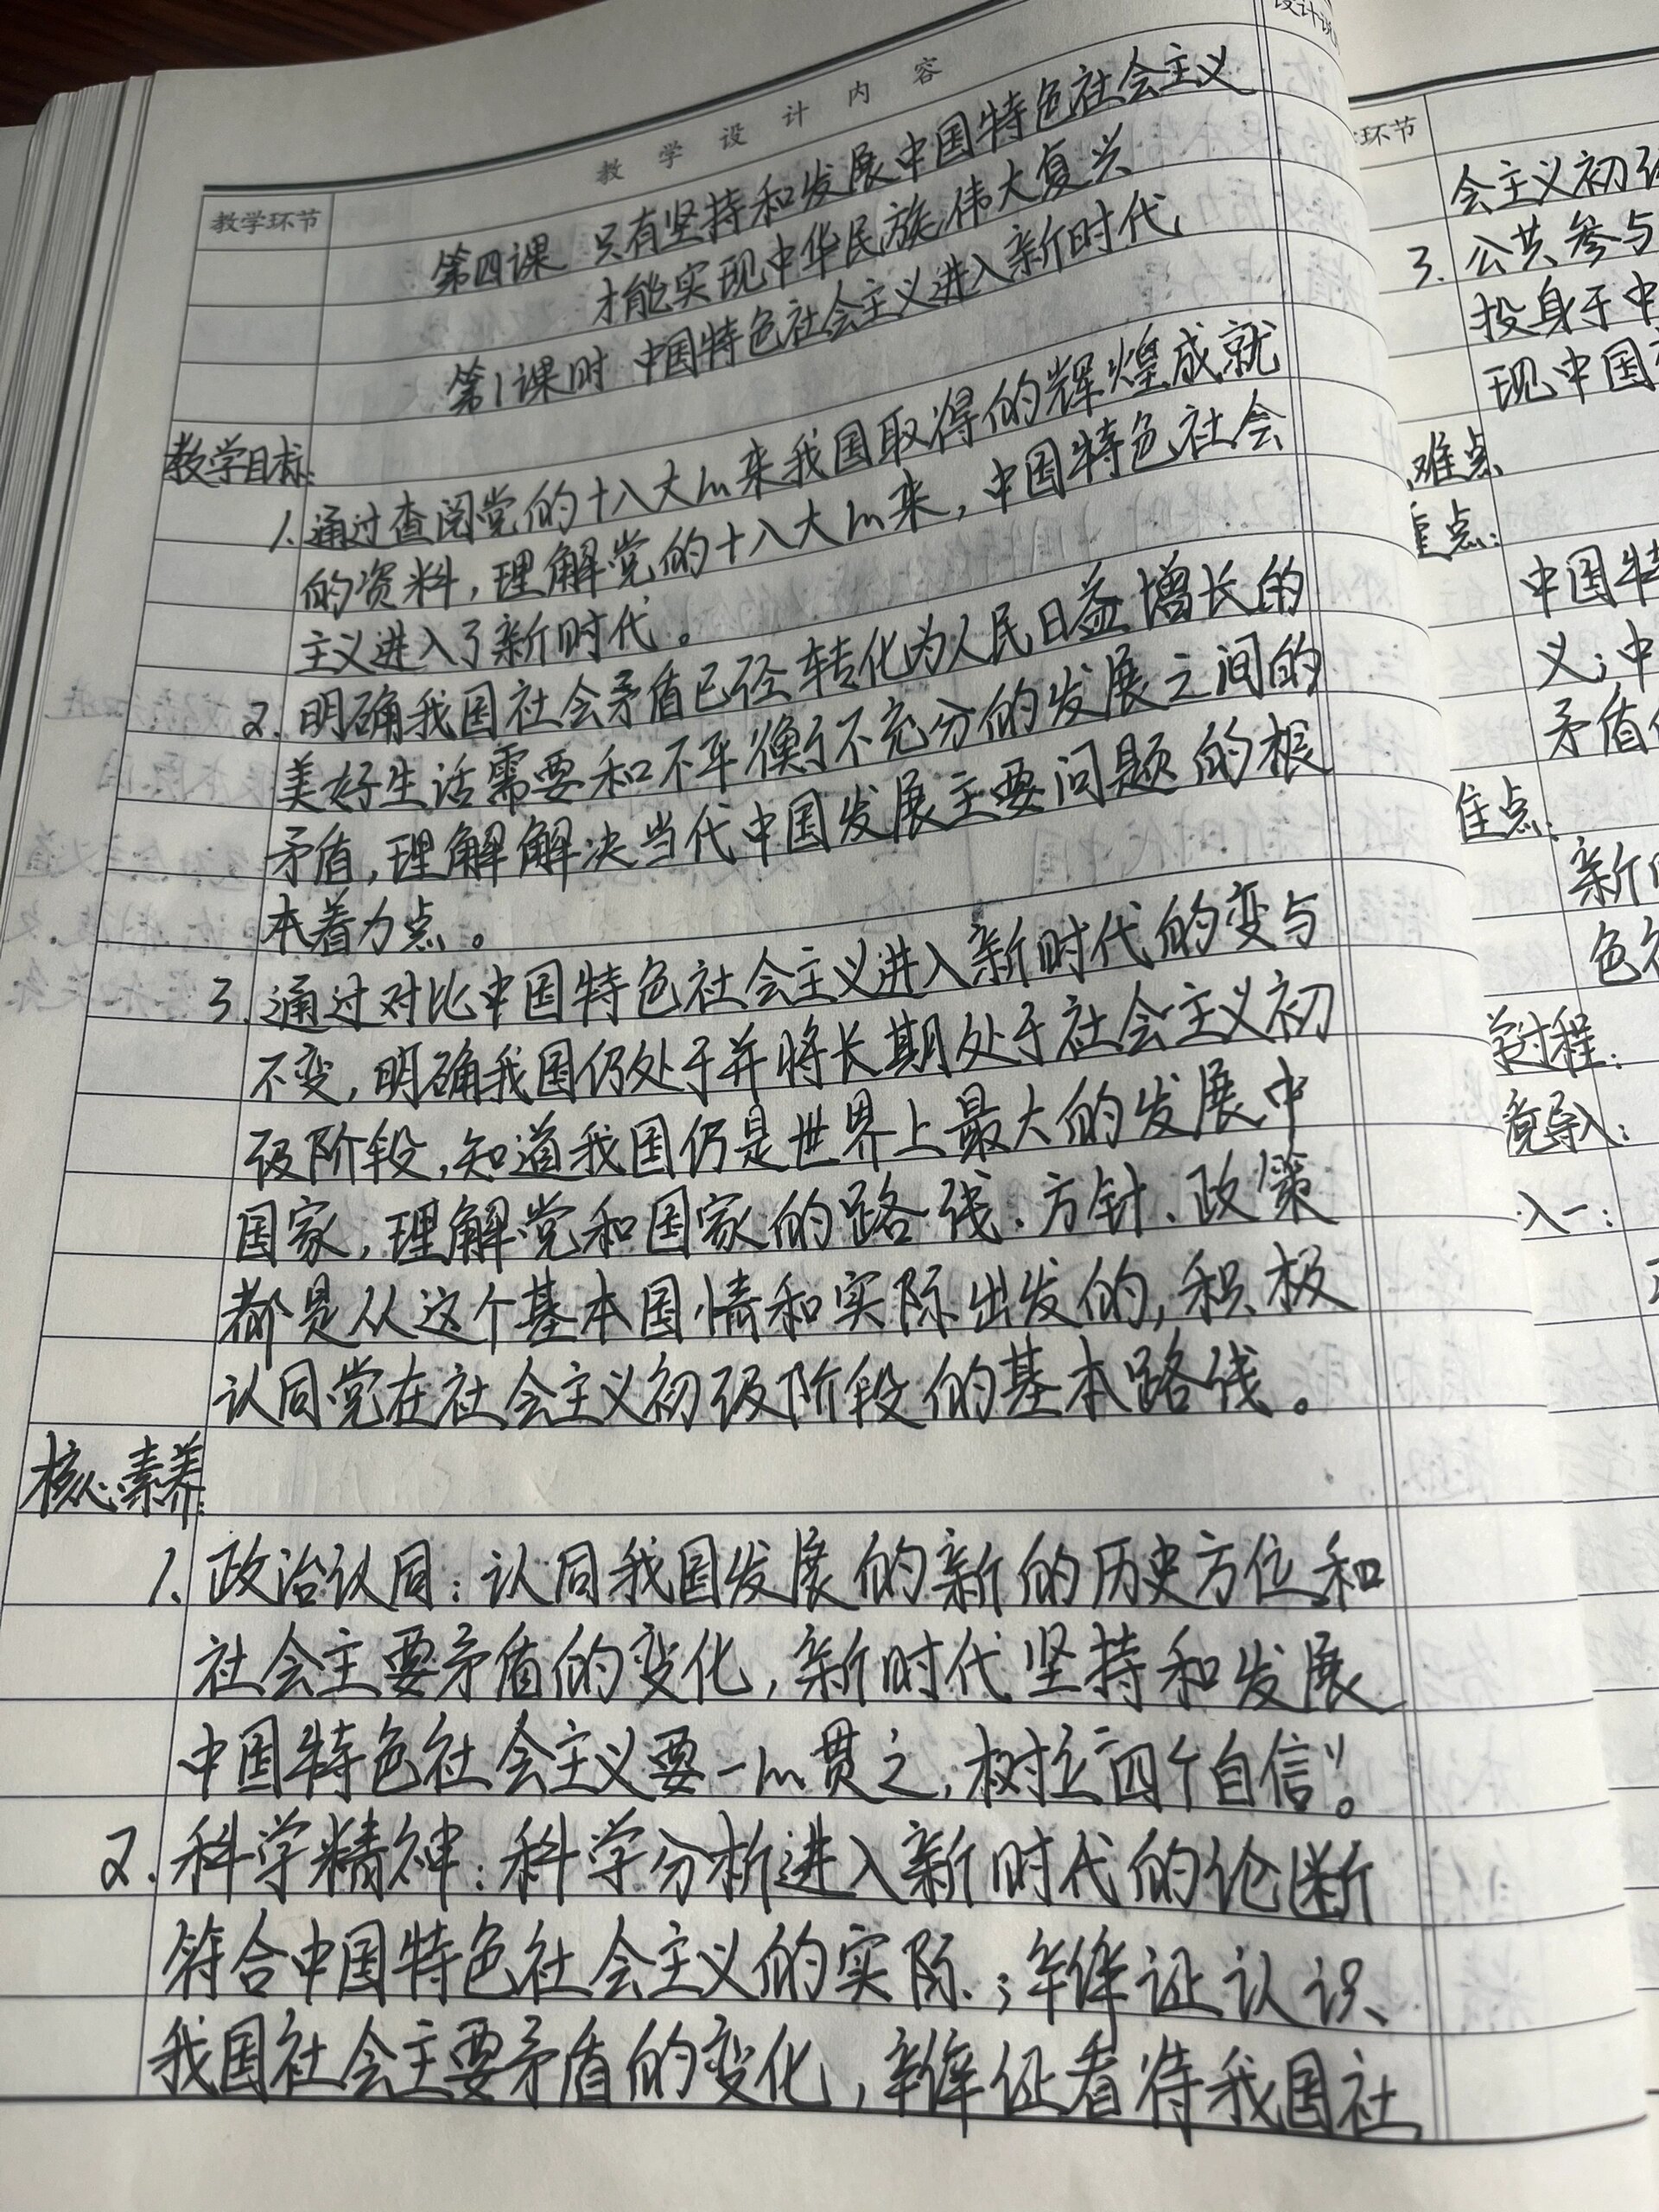 教学设计内容
教学环节
第四课 只有坚持和发展中国特色社会主义
才能实现中华民族伟大复兴
第1课时 中国特色社会主义进入新时代
教学目标:
1.通过查阅党的十八大以来我国取得的辉煌成就
的资料,理解党的十八大以来,中国特色社会
主义进入了新时代。
2.明确我国社会矛盾已经转化为人民日益增长的
美好生活需要和不平衡不充分的发展之间的
矛盾,理解解决当代中国发展主要问题的根
本着力点。
3.通过对比中国特色社会主义进入新时代的变与
不变,明确我国仍处于并将长期处于社会主义初
级阶段,知道我国仍是世界上最大的发展中
国家,理解党和国家的路线、方针、政策
都是从这个基本国情和实际出发的,积极
认同党在社会主义初级阶段的基本路线。
核心素养:
1.政治认同:认同我国发展的新的历史方位和
社会主要矛盾的变化,新时代坚持和发展
中国特色社会主义要一以贯之,树立“四个自信”。
2.科学精神:科学分析进入新时代的论断
符合中国特色社会主义的实际;辩证认识
我国社会主要矛盾的变化,辩证看待我国社
设计说
环节
会主义初级
3.公共参与
投身于中
现中国
难点
重点:
中国特
义;中
矛盾
焦点:
新时
色社
过程:
导入:
入一: